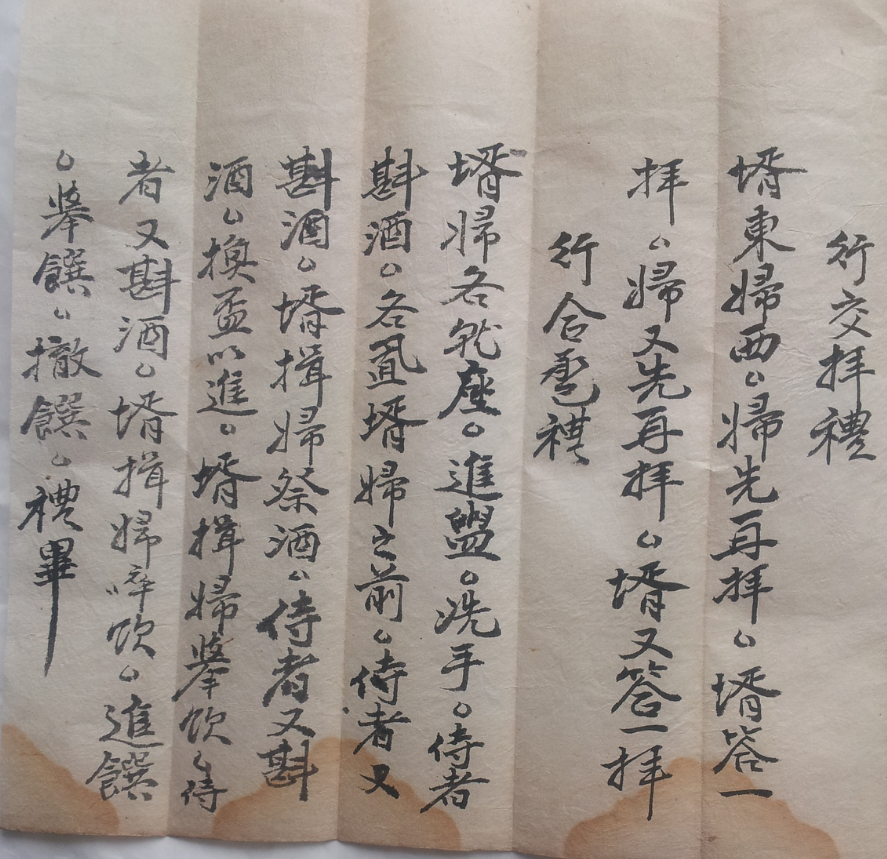 行交拜禮
壻東婦西。婦先再拜。壻答一
拜。婦又先再拜。壻又答一拜
行合巹禮
壻婦各就座。進盥。洗手。侍者
斟酒。各置壻婦之前。侍者又
斟酒。壻揖婦祭酒。侍者又斟
酒。換盃以進。壻揖婦擧飮。侍
者又斟酒。壻揖婦啐飮。進饌
。擧饌。撤饌。禮畢